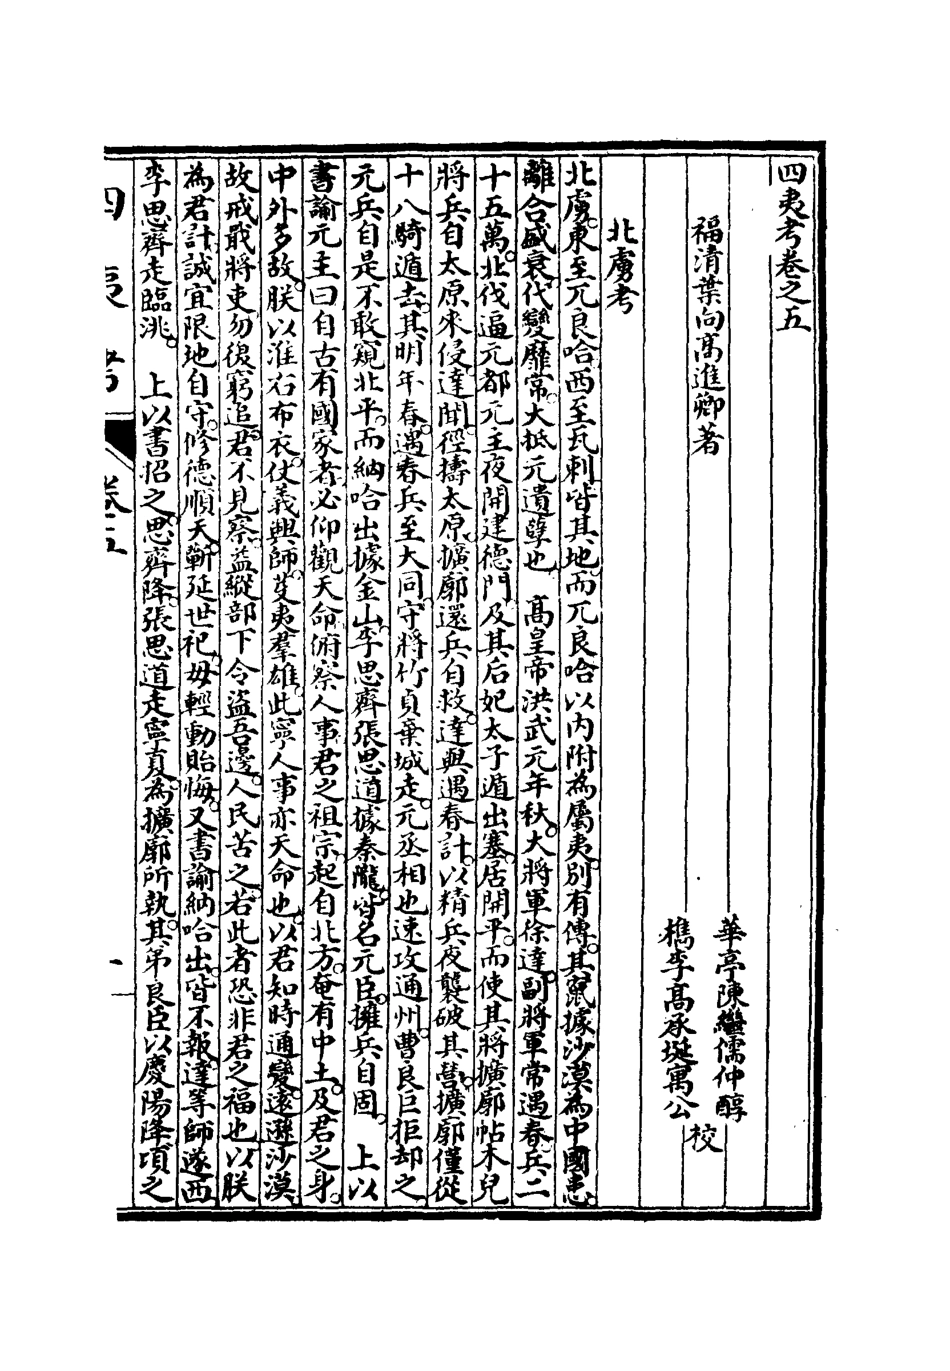 四夷考卷之五
福清葉向高進卿著
華亭陳繼儒仲醇
檇李高承埏寓公
校
北虜考
北虜東至兀良哈西至瓦剌皆其地而兀良哈以内附為屬夷别有傳其竄據沙漠為中國患
離合盛衰代變靡常大抵元遺孽也　高皇帝洪武元年秋大將軍徐達副將軍常遇春兵二
十五萬北伐逼元都元主夜開建德門及其后妃太子遁出塞居開平而使其將擴廓帖木兒
將兵自太原來侵達聞徑擣太原擴廓還兵自救達與遇春計以精兵夜襲破其營擴廓僅從
十八騎遁去其明年春遇春兵至大同守將竹貞棄城走元丞相也速攻通州曹良臣拒却之
元兵自是不敢窺北平而納哈出據金山李思齊張思道據秦隴皆名元臣擁兵自固　上以
書諭元主曰自古有國家者必仰觀天命俯察人事君之祖宗起自北方奄有中土及君之身
中外多故朕以淮右布衣仗義興師芟夷羣雄此寧人事亦天命也以君知時通變遠遯沙漠
故戒戢將吏勿復窮追君不見察益縱部下令盜吾邊人民苦之若此者恐非君之福也以朕
為君計誠宜限地自守修德順天蘄延世祀毋輕動貽悔又書諭納哈出皆不報達等師遂西
李思齊走臨洮　上以書招之思齊降張思道走寧夏為擴廓所執其弟良臣以慶陽降頃之
四夷考　卷五　一